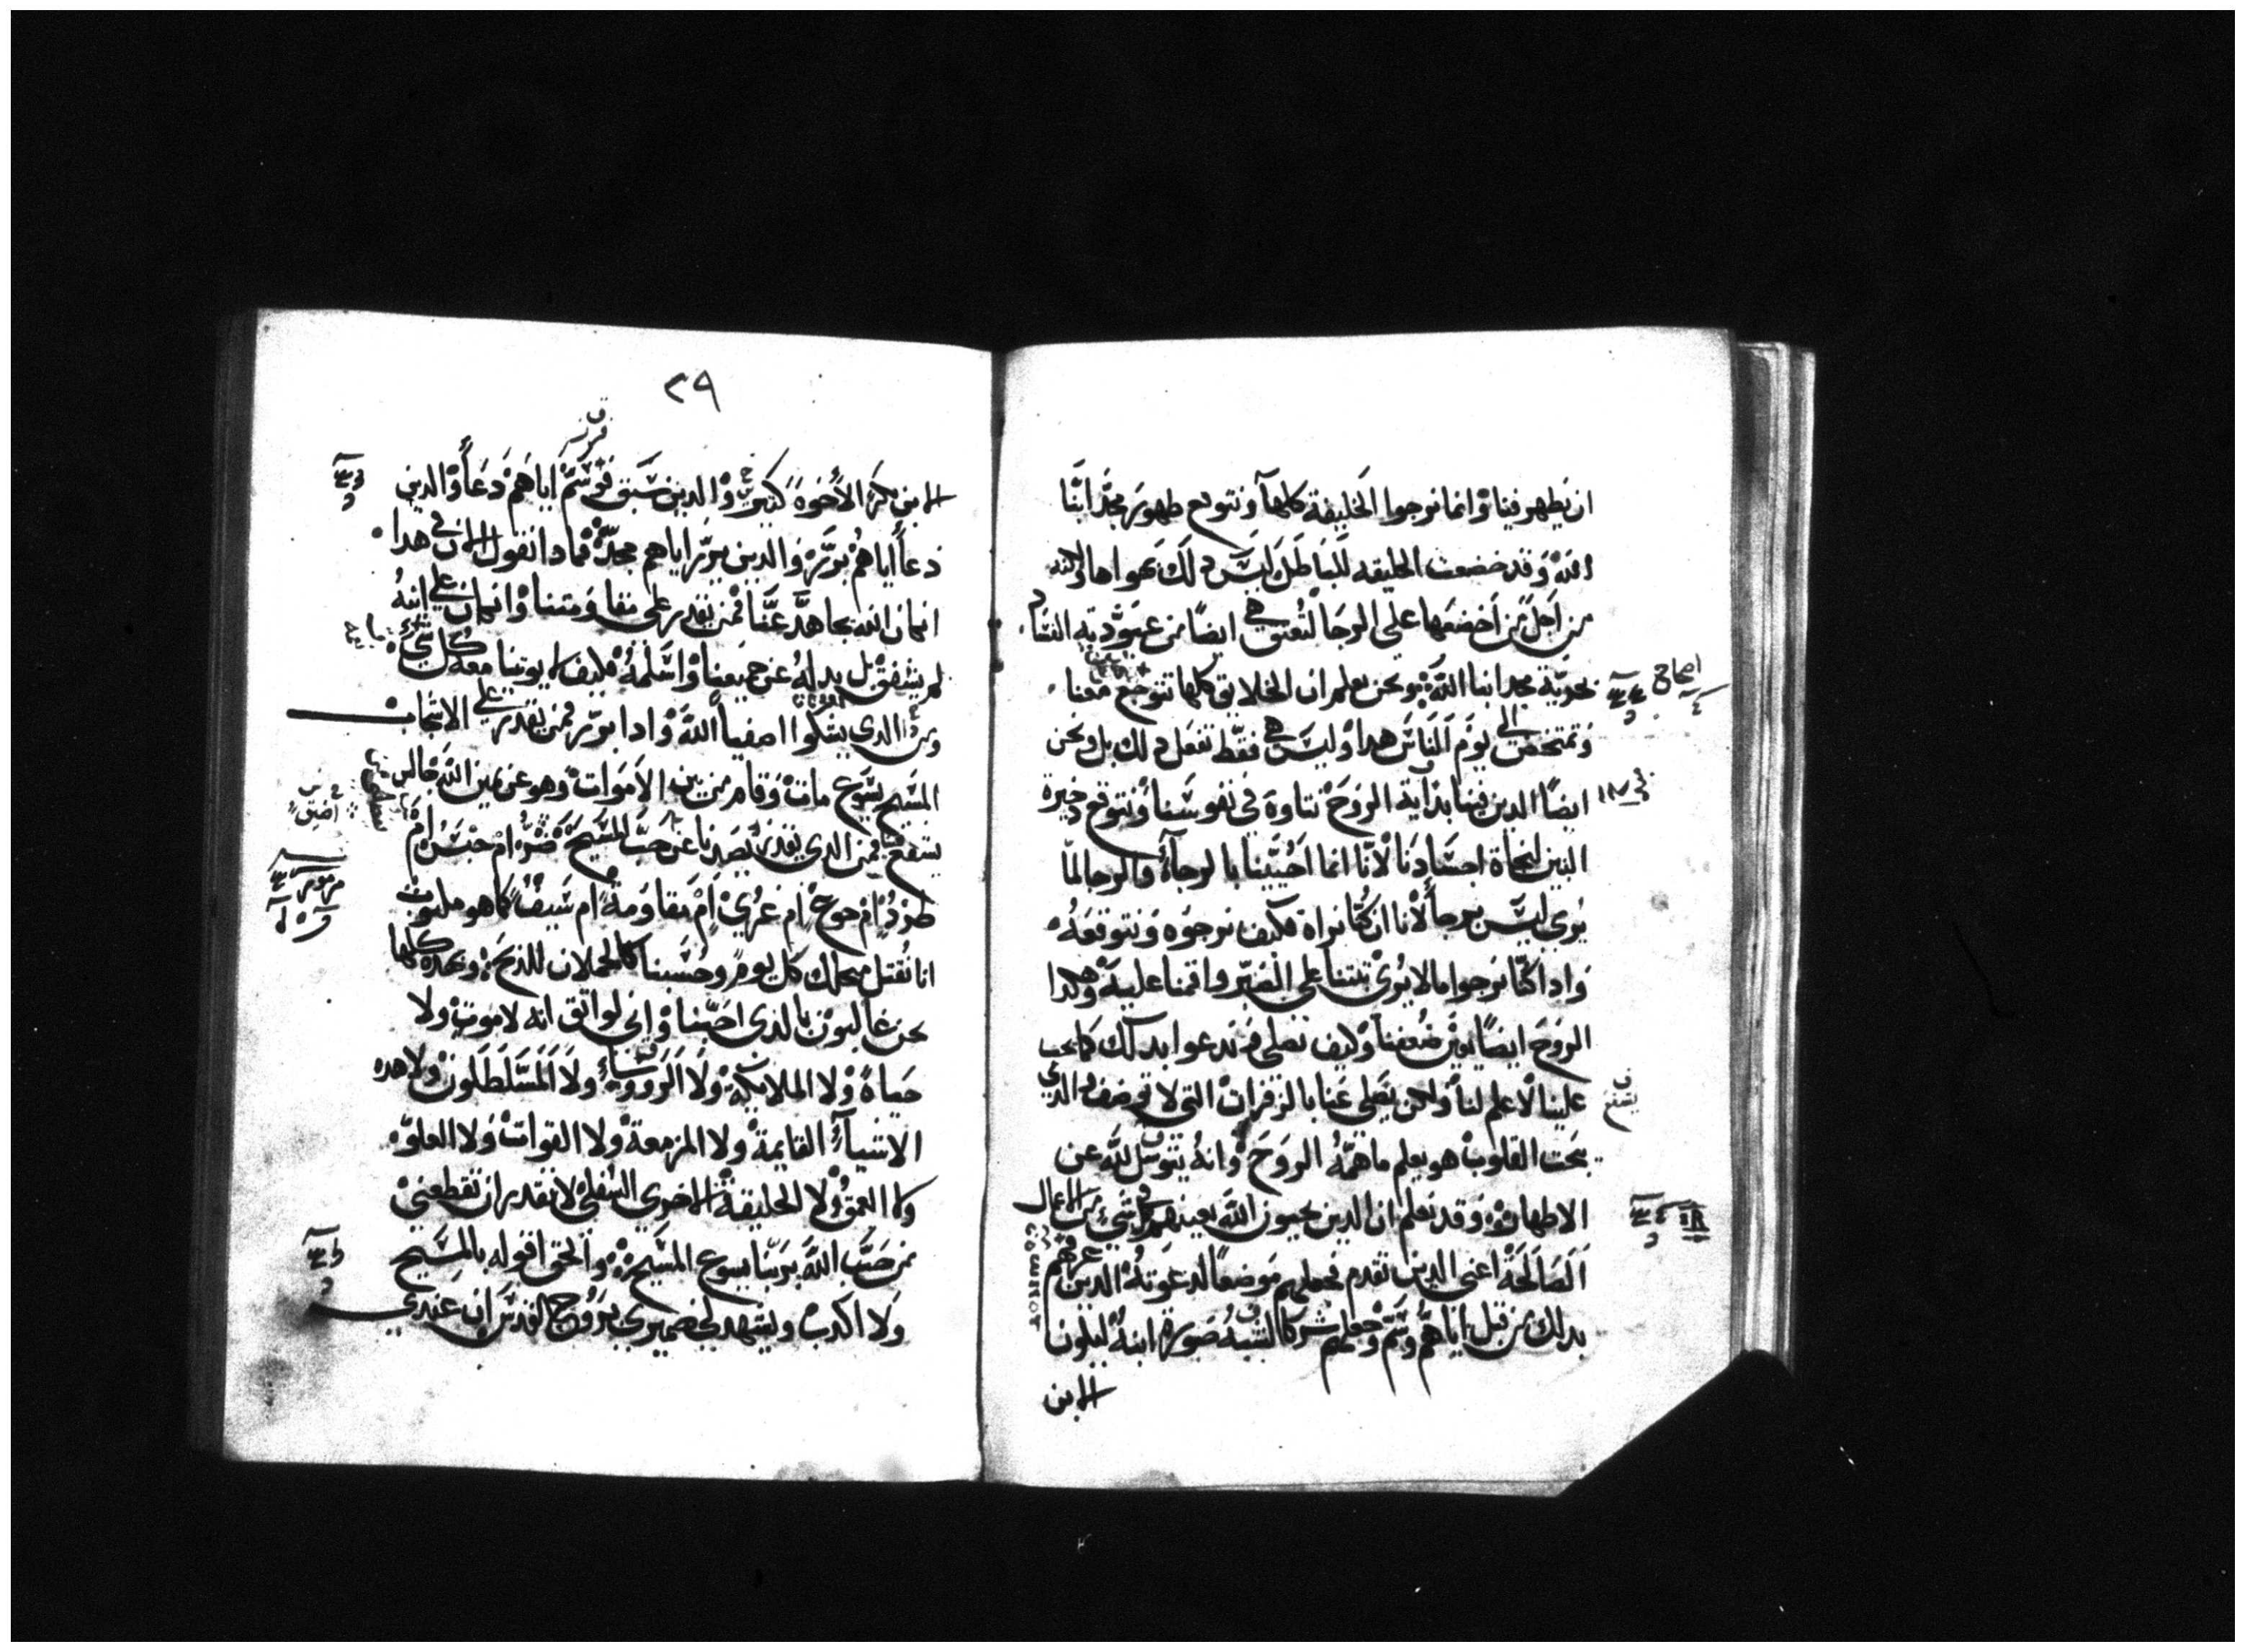 ان يظهر فينا وانما نرجوا الخليقة كلها ونتوقع ظهور مجد ابنا
الله وقد خضعت الخليقه للباطل ليس ذلك بهواها ولكنه
من اجل من اخضعها على الرجا لتعتق هي ايضا من عبودية الفساد
بحرية مجد ابنا الله ونحن نعلم ان الخلايق كلها تتوجع معنا
وتمتخض الى يوم الناس هدا وليس هي فقط تفعل ذلك بل ونحن
ايضا الدين فينا بداية الروح نتاوه في نفوسنا ونتوقع دخيرة
البنين لنجاة اجسادنا لانا انما احيينا بالرجا والرجا لما
يرى ليس برجا لانا ان كنا نراه فكيف نرجوه ونتوقعه
وادا كنا نرجوا ما لا يرى ثبتنا على الصبر واقمنا عليه وهكدا
الروح ايضا يعين ضعفنا وكيف نصلي وندعوا بدلك كما يجب
علينا لا علم لنا ولكن يصلي عنا بالزفرات التي لا توصف الدي
بحت القلوب هو يعلم ما همه الروح وانه يتوسل لله عن
الاطهار وقد نعلم ان الدين يحبون الله يعينهم في كل شي من الاعمال
الصالحة اعني الدين تقدم فجعلهم موضعا لدعوته الدين عرفهم
بدلك من قبل اياهم وسم وجعلهم شركا لشبه صورة ابنه ليكون
الابن
٢٩
الابن بكر الاخوة كثيرين والدين سبق فوسم اياهم دعا والدين
دعا اياهم برر والدين برر اياهم مجد فمادا نقول الان في هدا
ان كان الله يجاهد عنا فمن يقدر على مقاومتنا وان كان على ابنه
لم يشفق بل بدله عن جميعنا واسلمه فكيف لا يوتينا معه كل شي
ومن الدي يشكوا اصفيا الله وادا برر فمن يقدر على الاشجاب
المسيح يسوع مات وقام من بين الاموات وهو عن يمين الله جالس
يشفع فينا فمن الدي يقدر يصدنا عن حب المسيح ضر ام حبس ام
طرد ام جوع ام عري ام مقاومة ام سيف كما هو مكتوب
انا نقتل من اجلك كل يوم وحسبنا كالحملان للدبح وبهده كلها
نحن غالبون بالدي احبنا واني لواثق انه لا موت ولا
حياة ولا الملايكة ولا الرووسا ولا المسلطون ولا هده
الاشيا القايمة ولا المزمعة ولا القوات ولا العلو
ولا العمق ولا الخليقة الاخرى السفلى لا تقدر ان تقطعني
من حب الله بربنا يسوع المسيح والحق اقوله بالمسيح
ولا اكدب ويشهد لي ضميري بروح القدس ان عندي